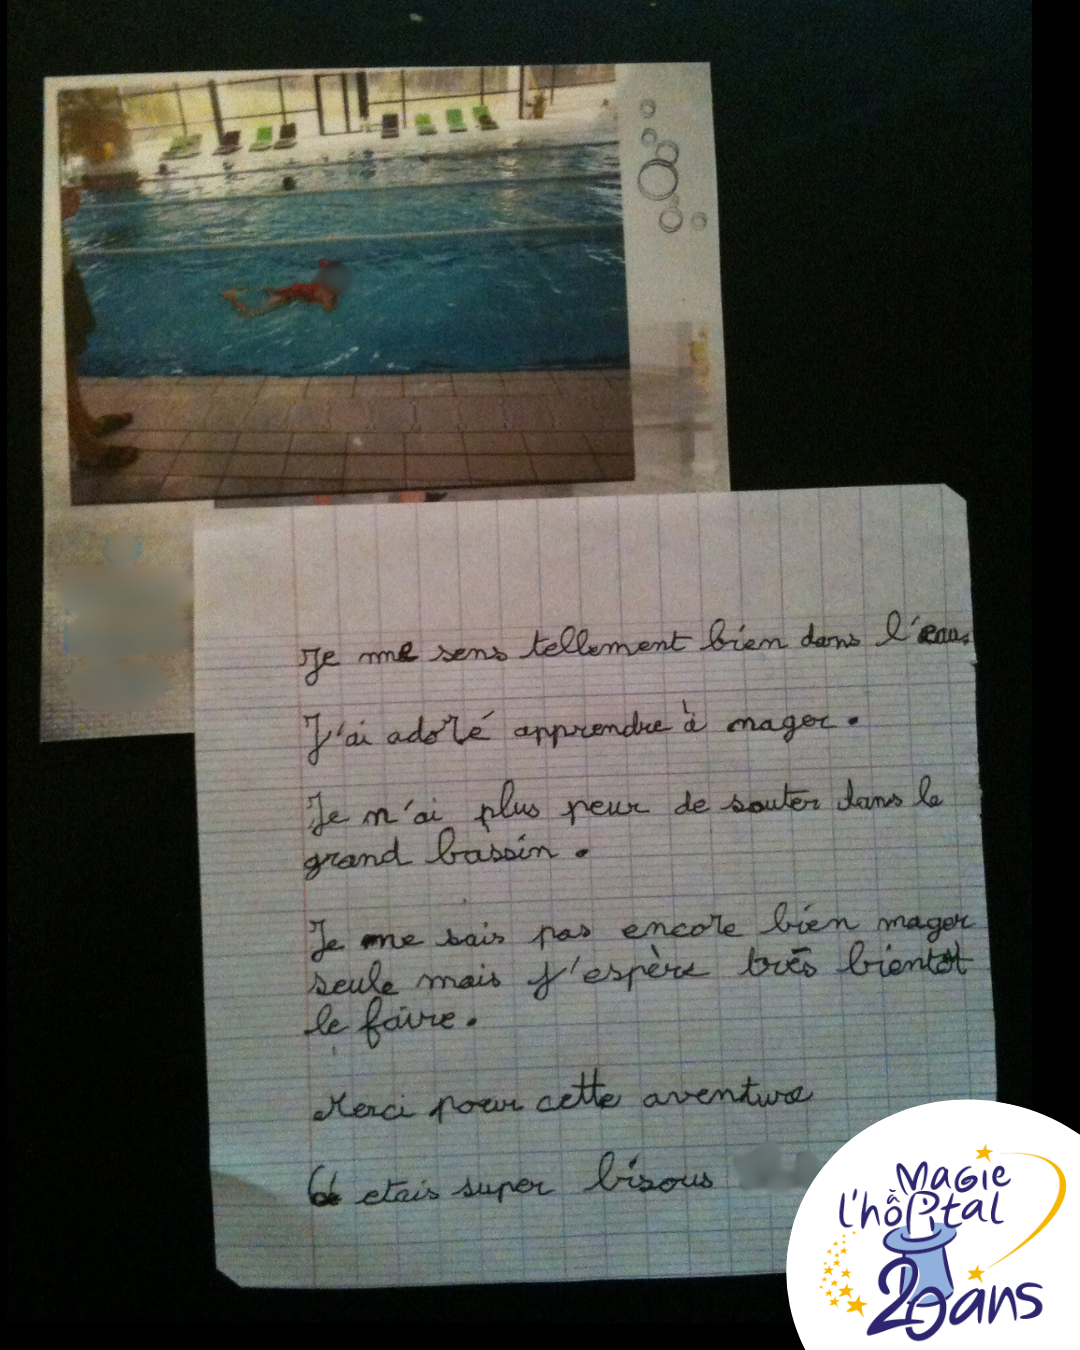 Je me sens tellement bien dans l'eau.
J'ai adoré apprendre à nager.
Je n'ai plus peur de sauter dans le
grand bassin.
Je ne sais pas encore bien nager
seule mais j'espère très bientôt
le faire.
Merci pour cette aventure
C' etais super bisous
MAGIE
à
l'hôpital
20 ans